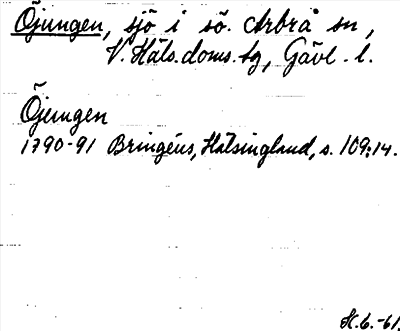 Öjungen, sjö i sö. Arbrå sn,
V. Häls. doms. tg, Gävl. l.
Öjungen
1790-91 Bringéus, Hälsingland, s. 109:14.
H.G.-61.